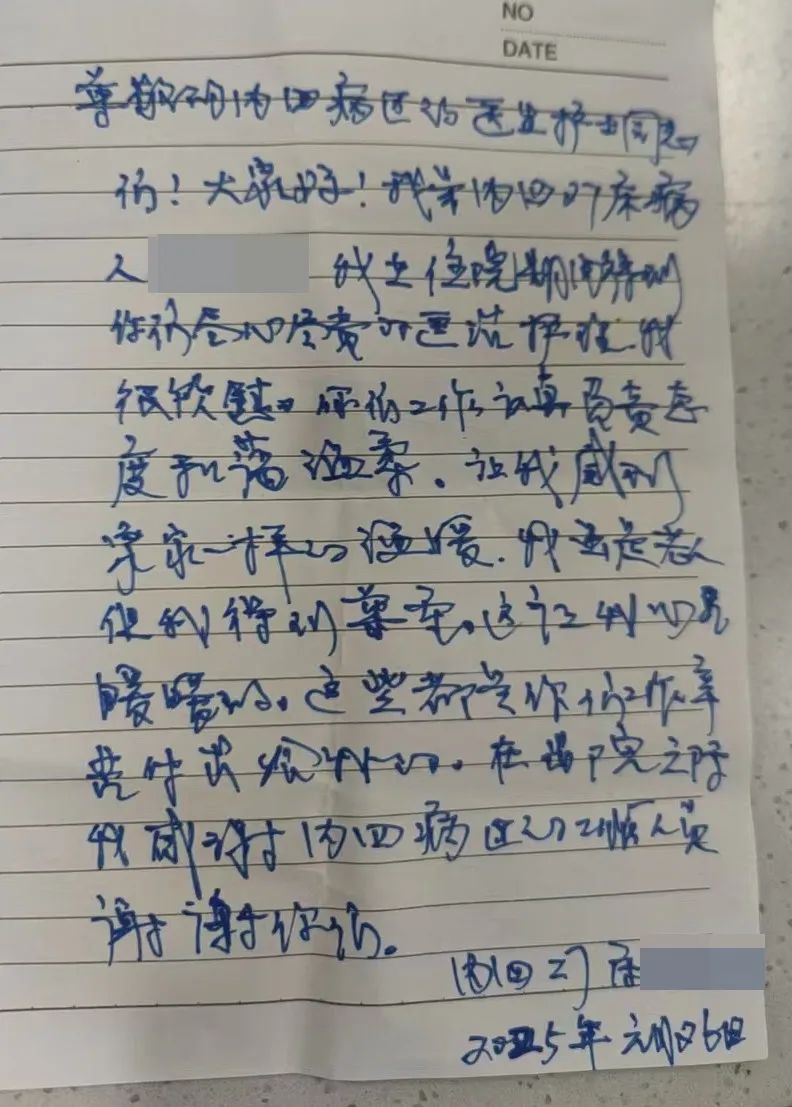 NO
DATE
尊敬的内四病区的医生护士同志
们！大家好！我是内四27床病
人 我在住院期间得到
你们尽心尽责的医治护理我
很欣慰。你们工作认真负责态
度和蔼温柔。让我感到
像家一样的温暖。我虽是老人
但我得到尊重。这让我心里
暖暖的。这些都是你们工作辛
苦付出给我的。在出院之际
我感谢内四病区的工作人员
谢谢你们。
内四27床
2025年元月26日